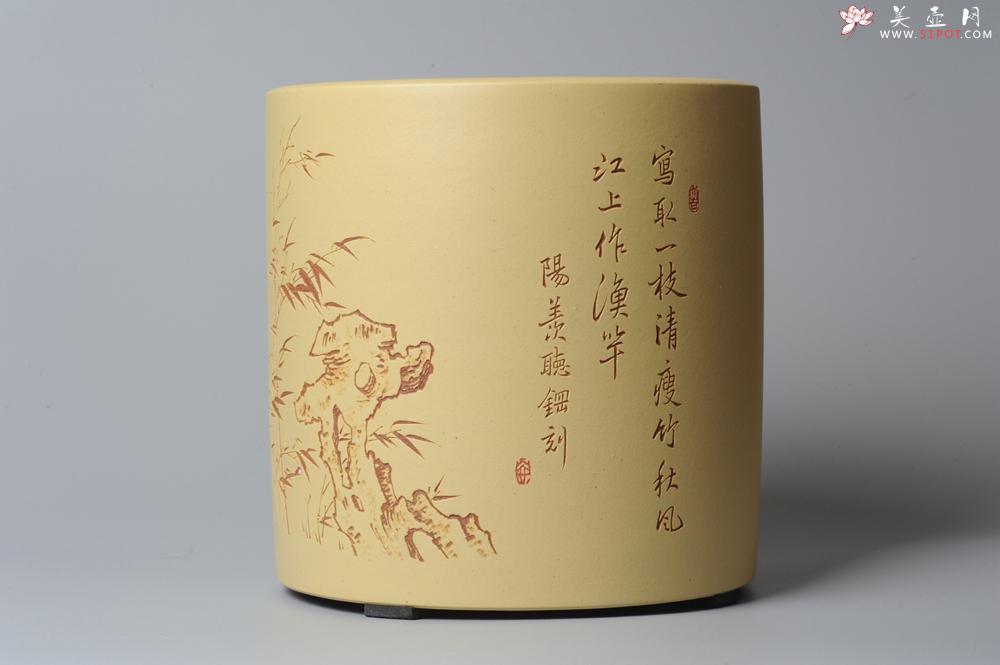 美壶网
WWW.51POT.COM
寫取一枝清瘦竹秋風
江上作漁竿
陽羨聽鈿刻